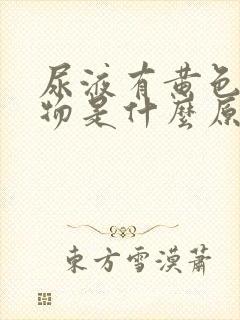 尿液有黄色
物是什麼原
東方雪漠蕭